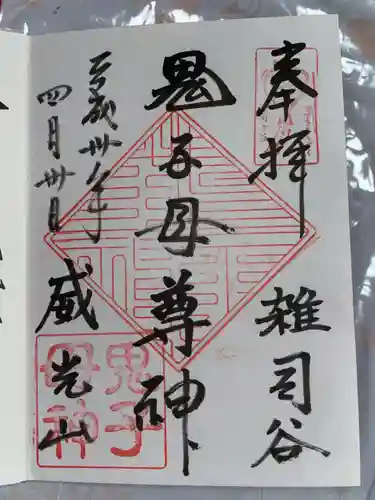 奉拝
雑司谷
鬼子母尊神
平成卅一年
四月卅日
威光山
鬼子
母神